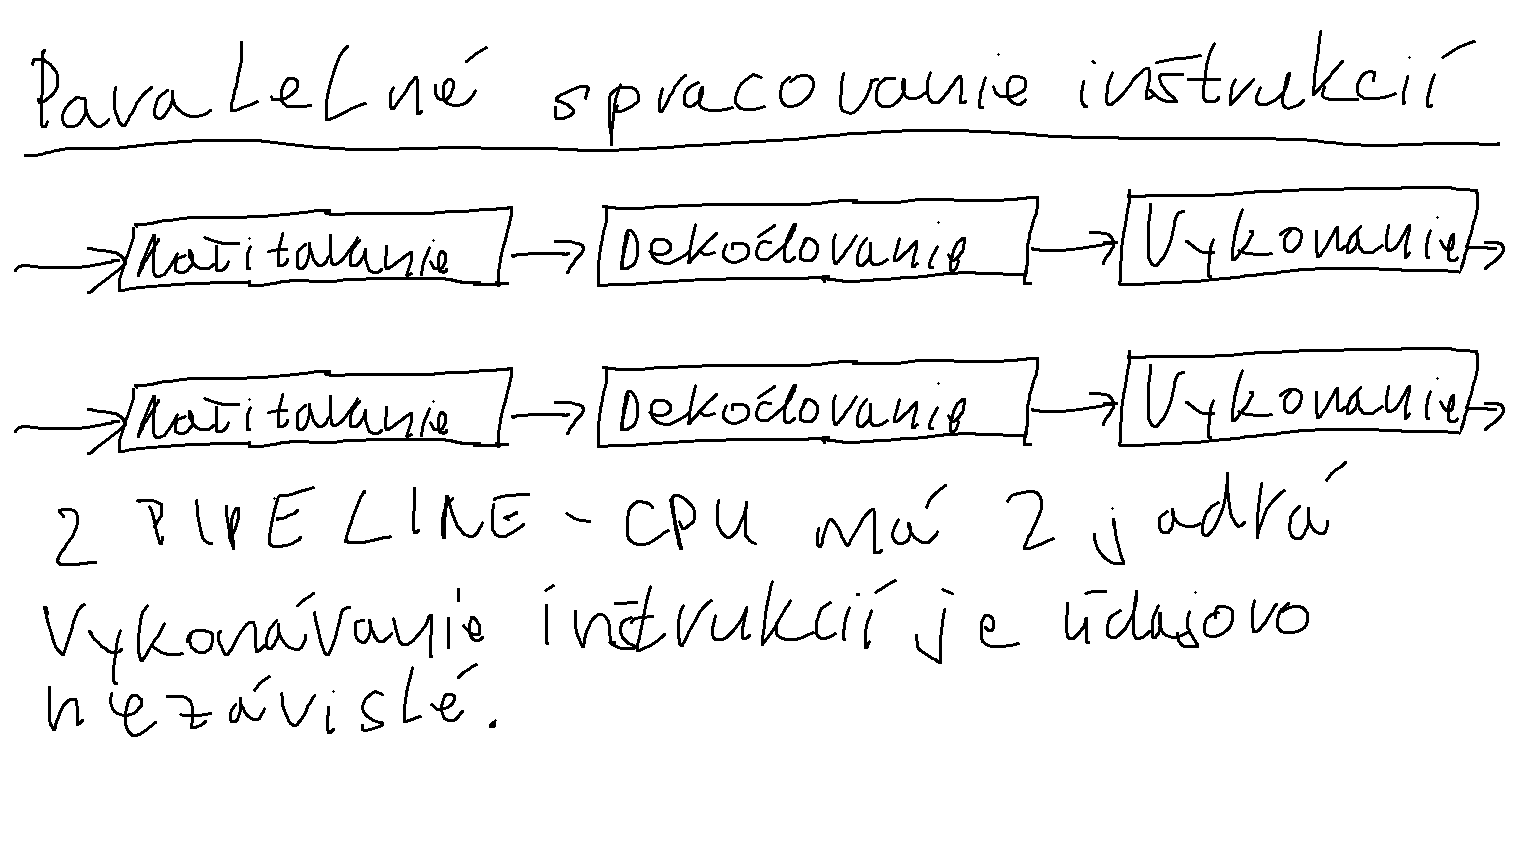 Paralelné spracovanie inštrukcií
Načítavanie Dekódovanie Vykonanie
Načítavanie Dekódovanie Vykonanie
2 PIPELINE - CPU má 2 jadrá
Vykonávanie inštrukcií je údajovo
nezávislé.